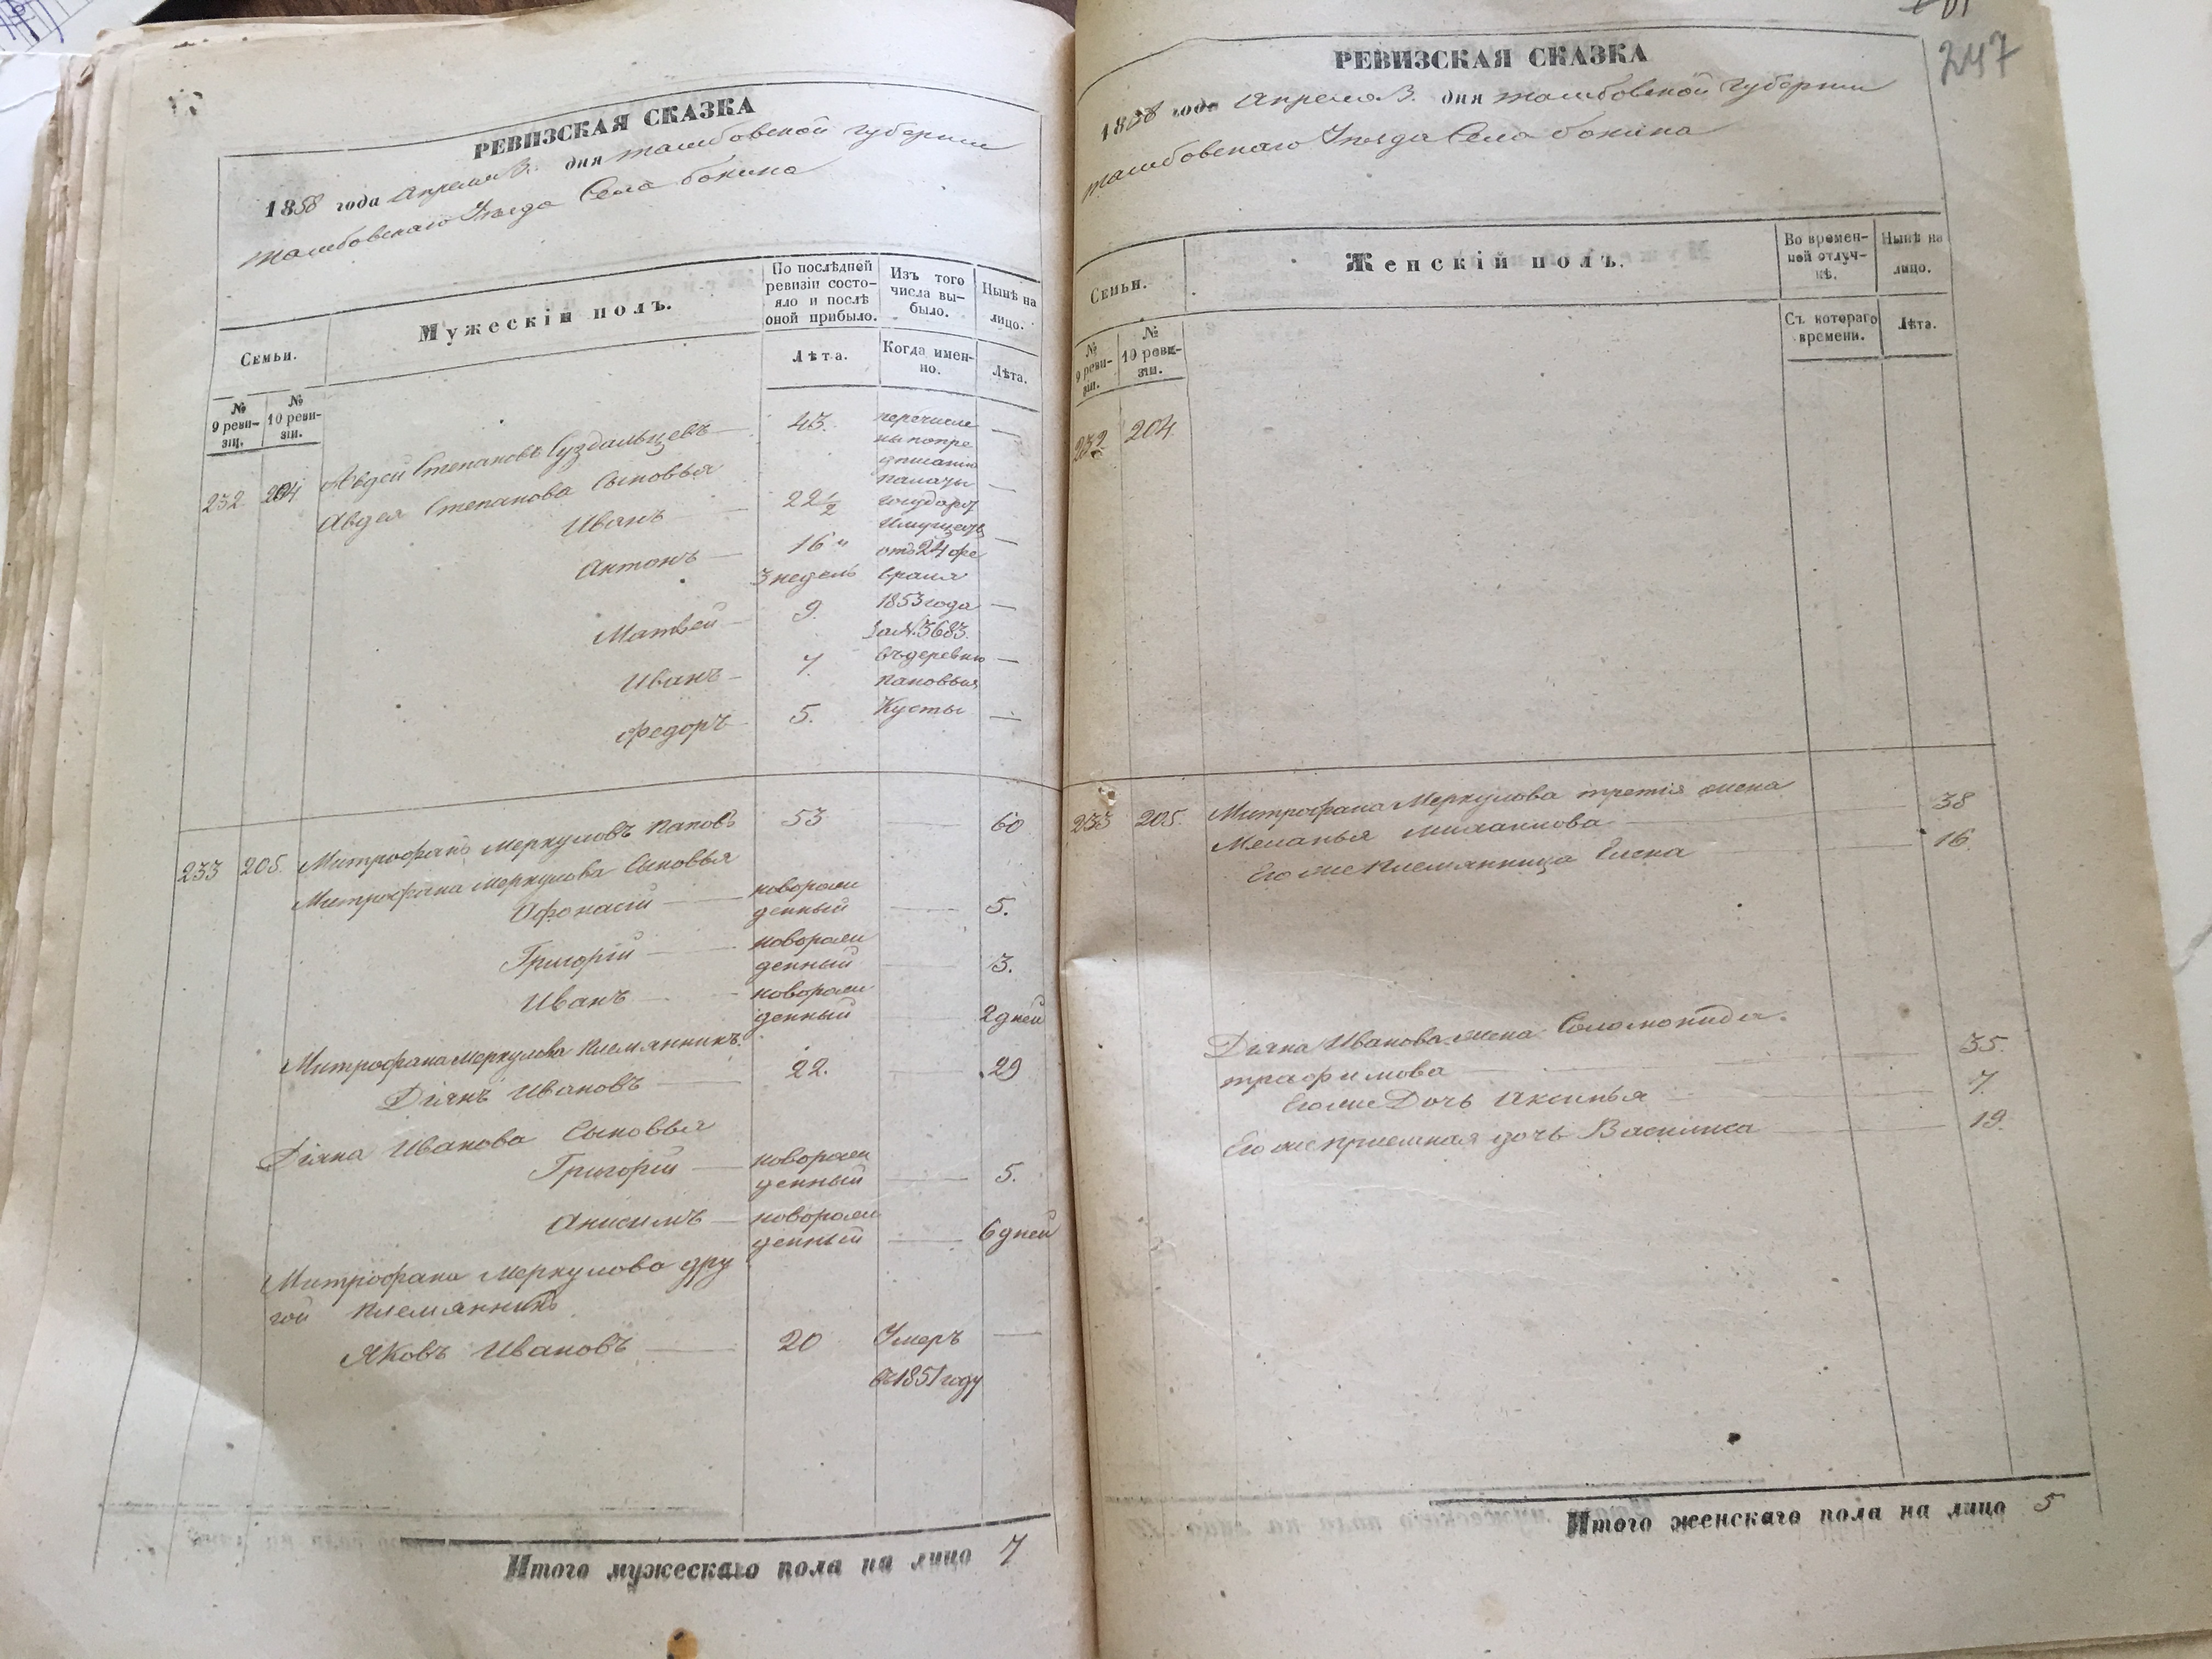 РЕВИЗСКАЯ СКАЗКА
1858 года Апреля 3. дня тамбовской губернии
тамбовскаго Уезда Села бокина
Семьи.
Мужескій полъ.
По послѣдней ревизіи состояло и послѣ оной прибыло.
Изъ того числа выбыло.
Нынѣ на лицо.
№ 9 ревизіи.
№ 10 ревизіи.
Лѣта.
Когда именно.
Лѣта.
232 204 Авдей Степановъ Суздальцевъ 43. перечисле
ны по пре
дписанію
Авдея Степанова Сыновья палаты
Иванъ 22 1/2 государст
имуществ
Антонъ 16 " отъ 24 фе
3 недель враля
Матвей 9. 1853 года
за № 3683.
Иванъ 7. въ деревню
пановыя
Федоръ 5. Кусты
233 205. Митрофанъ Меркуловъ Паповъ 53 60
Митрофана Меркулова Сыновья
Афонасій новорож
денный 5.
Григорій новорож
денный 3.
Иванъ новорож
денный 2 дней
Митрофана Меркулова племянникъ
Діянъ Ивановъ 22. 29
Діяна Иванова Сыновья
Григорій новорож
денный 5.
Анисимъ новорож
денный 6 дней
Митрофана Меркулова дру
гой племянникъ
Яковъ Ивановъ 20 Умеръ
въ 1851 году
Итого мужескаго пола на лицо 7
247
РЕВИЗСКАЯ СКАЗКА
1858 года Апреля 3. дня тамбовской губернии
тамбовскаго Уезда Села бокина
Семьи.
Женскій полъ.
Во временной отлучкѣ.
Нынѣ на лицо.
№ 9 ревизіи.
№ 10 ревизіи.
Съ котораго времени.
Лѣта.
232 204.
233 205. Митрофана Меркулова третія жена
Меланья 38
Его же племянница Елена 16.
Діяна Иванова жена Соломонида
трафимова 35.
Его же Дочь Аксинья 7.
Его же приемная дочь Василиса 19.
Итого женскаго пола на лицо 5